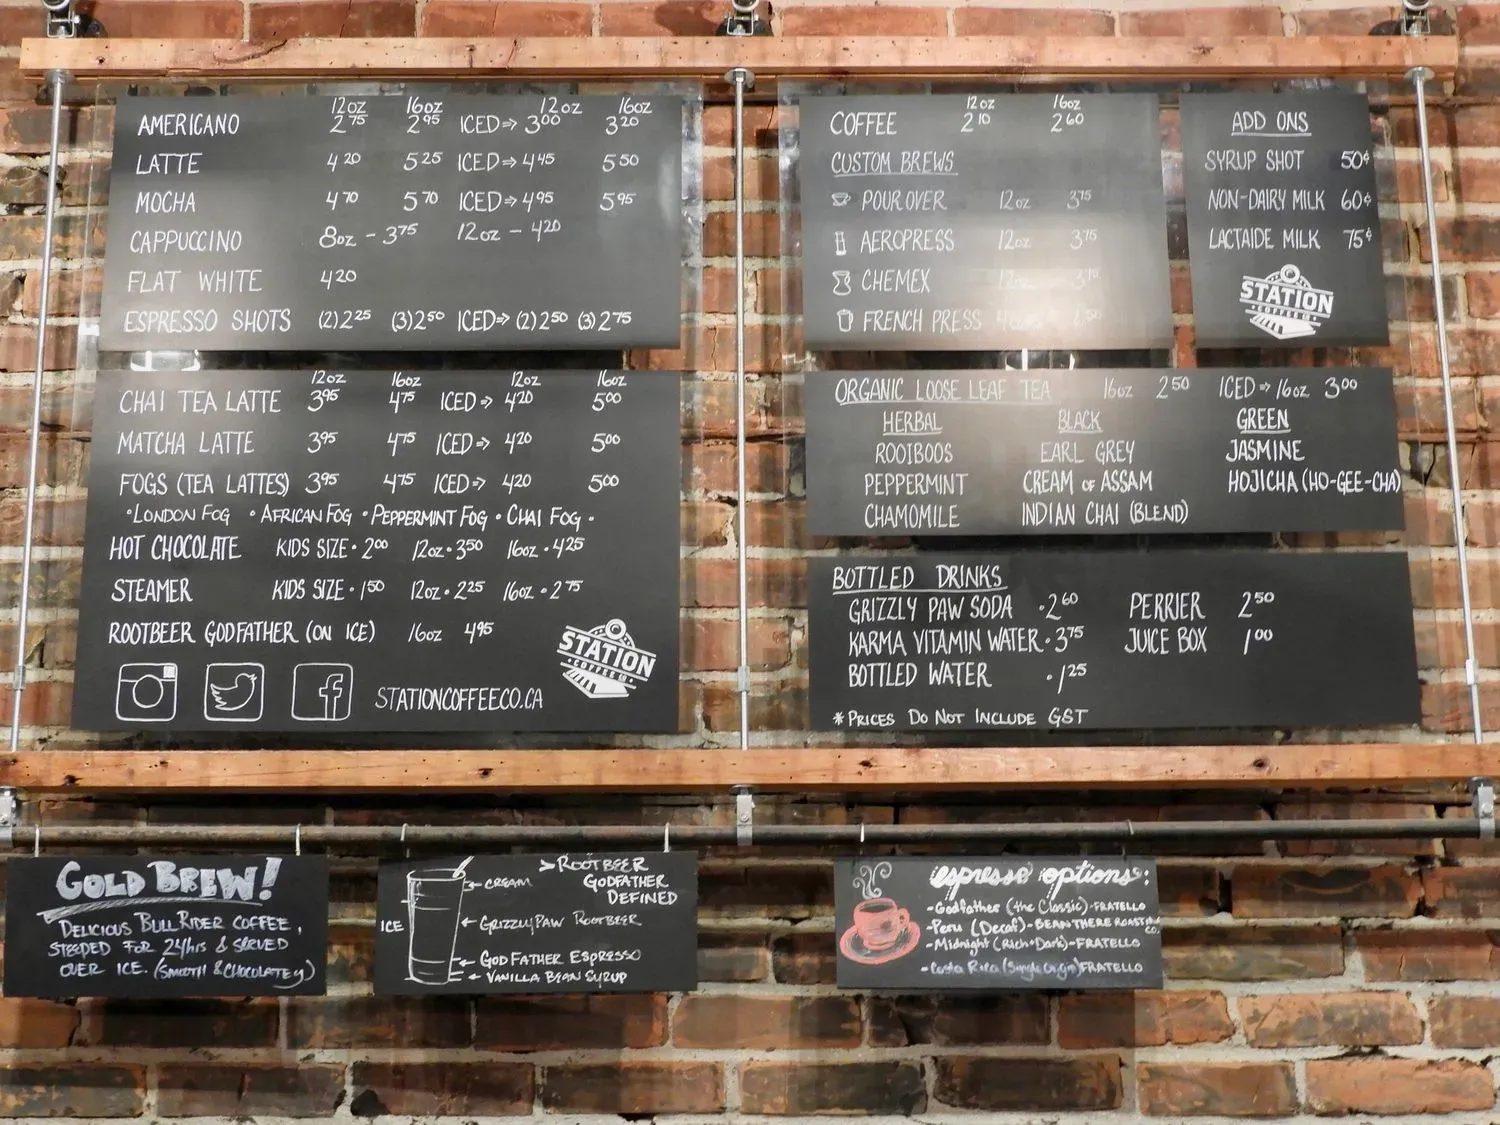 12oz 16oz 12oz 16oz
AMERICANO 2 75 2 95 ICED⇒ 3 00 3 20
LATTE 4 20 5 25 ICED⇒ 4 45 5 50
MOCHA 4 70 5 70 ICED⇒ 4 95 5 95
CAPPUCCINO 8oz - 3 75 12oz - 4 20
FLAT WHITE 4 20
ESPRESSO SHOTS (2) 2 25 (3) 2 50 ICED⇒ (2) 2 50 (3) 2 75
12oz 16oz 12oz 16oz
CHAI TEA LATTE 3 95 4 75 ICED⇒ 4 20 5 00
MATCHA LATTE 3 95 4 75 ICED⇒ 4 20 5 00
FOGS (TEA LATTES) 3 95 4 75 ICED⇒ 4 20 5 00
•LONDON FOG •AFRICAN FOG •PEPPERMINT FOG •CHAI FOG•
HOT CHOCOLATE KIDS SIZE•2 00 12oz•3 50 16oz•4 25
STEAMER KIDS SIZE•1 50 12oz•2 25 16oz•2 75
ROOTBEER GODFATHER (ON ICE) 16oz 4 95
STATION
COFFEE CO.
STATIONCOFFEECO.CA
12oz 16oz
COFFEE 2 10 2 60
CUSTOM BREWS
POUROVER 12oz 3 75
AEROPRESS 12oz 3 75
CHEMEX 12oz
FRENCH PRESS
ADD ONS
SYRUP SHOT 50¢
NON-DAIRY MILK 60¢
LACTAIDE MILK 75¢
STATION
COFFEE CO.
ORGANIC LOOSE LEAF TEA 16oz 2 50 ICED⇒16oz 3 00
HERBAL BLACK GREEN
ROOIBOOS EARL GREY JASMINE
PEPPERMINT CREAM OF ASSAM HOJICHA (HO-GEE-CHA)
CHAMOMILE INDIAN CHAI (BLEND)
BOTTLED DRINKS
GRIZZLY PAW SODA •2 60 PERRIER 2 50
KARMA VITAMIN WATER•3 75 JUICE BOX 1 00
BOTTLED WATER •1 25
*PRICES DO NOT INCLUDE GST
GOLD BREW!
DELICIOUS BULLRIDER COFFEE,
STEEPED FOR 24hrs & SERVED
OVER ICE. (SMOOTH & CHOCOLATEy)
>ROOTBEER
GODFATHER
DEFINED
CREAM
ICE
GRIZZLYPAW ROOTBEER
GODFATHER ESPRESSO
VANILLA BEAN SYRUP
espresso options:
-Godfather (the Classic)-FRATELLO
-Peru (Decaf)-BEAN THERE ROASTING CO.
-Midnight (Rich+Dark)-FRATELLO
-Costa Rica (Single Origin) FRATELLO